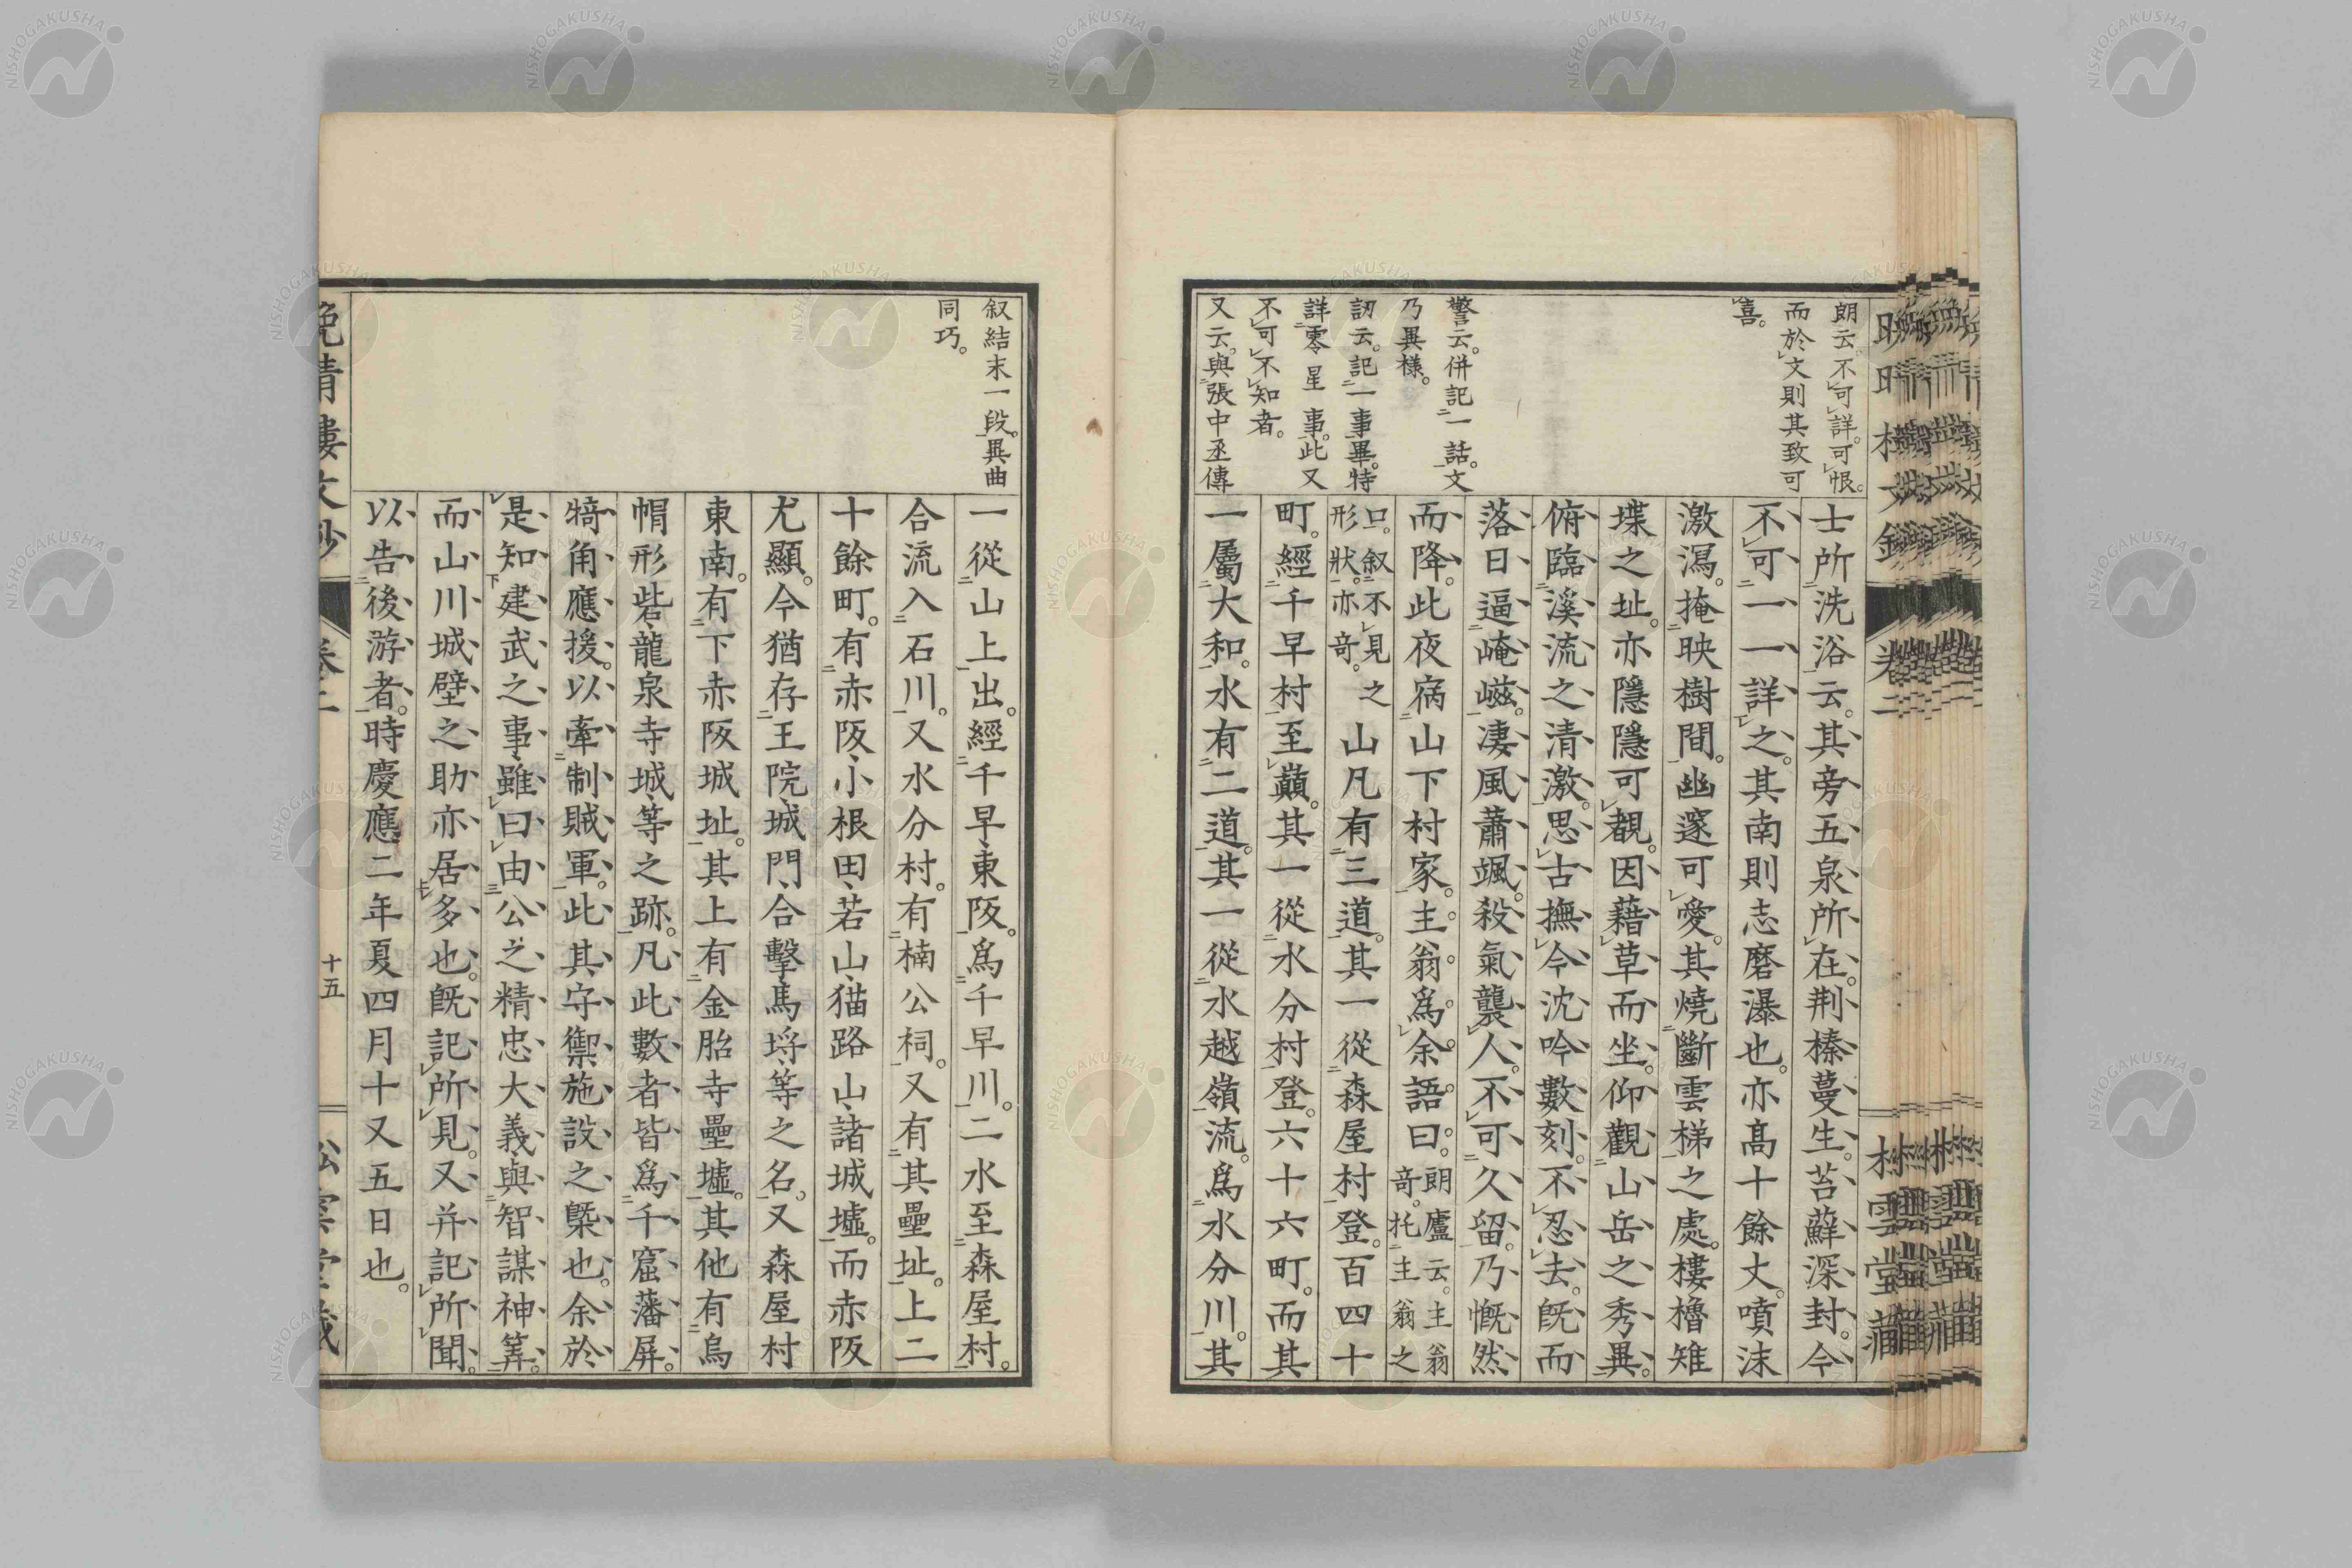 朗云。不可詳。可恨。
而於文則其致可
喜。
警云。併記一話。文
乃異樣。
訒云。記一事畢。特
詳零星事。此又
不可不知者。
又云。與張中丞傳
士所洗浴云。其旁五泉所在。荆榛蔓生。苔蘚深封。今
不可一一詳之。其南則志磨瀑也。亦高十餘丈。噴沫
激瀉。掩映樹間。幽邃可愛。其燒斷雲梯之處。樓櫓雉
堞之址。亦隱隱可覩。因藉草而坐。仰觀山岳之秀異。
俯臨溪流之清激。思古撫今。沈吟數刻。不忍去。既而
落日逼崦嵫。凄風蕭颯。殺氣襲人。不可久留。乃慨然
而降。此夜宿山下村家。主翁爲余語曰。朗廬云。主翁奇。托主翁之
口。叙不見之形狀。亦奇。山凡有三道。其一從森屋村登。百四十
町。經千早村至巔。其一從水分村登。六十六町。而其
一屬大和。水有二道。其一從水越嶺流。爲水分川。其
叙結末一段。異曲
同巧。
一從山上出。經千早、東阪。爲千早川。二水至森屋村。
合流入石川。又水分村。有楠公祠。又有其壘址。上二
十餘町。有赤阪、小根田、若山、猫路山、諸城墟。而赤阪
尤顯。今猶存王院、城門、合擊、馬埒等之名。又森屋村
東南。有下赤阪城址。其上有金胎寺壘墟。其他有烏
帽形砦、龍泉寺城、等之跡。凡此數者皆爲千窟藩屏。
犄角應援。以牽制賊軍。此其守禦施設之槩也。余於
是知建武之事、雖曰由公之精忠大義、與智謀神筭。
而山川城壁之助亦居多也。既記所見。又并記所聞。
以告後游者。時慶應二年夏四月十又五日也。
晩晴樓文鈔 卷二 十五